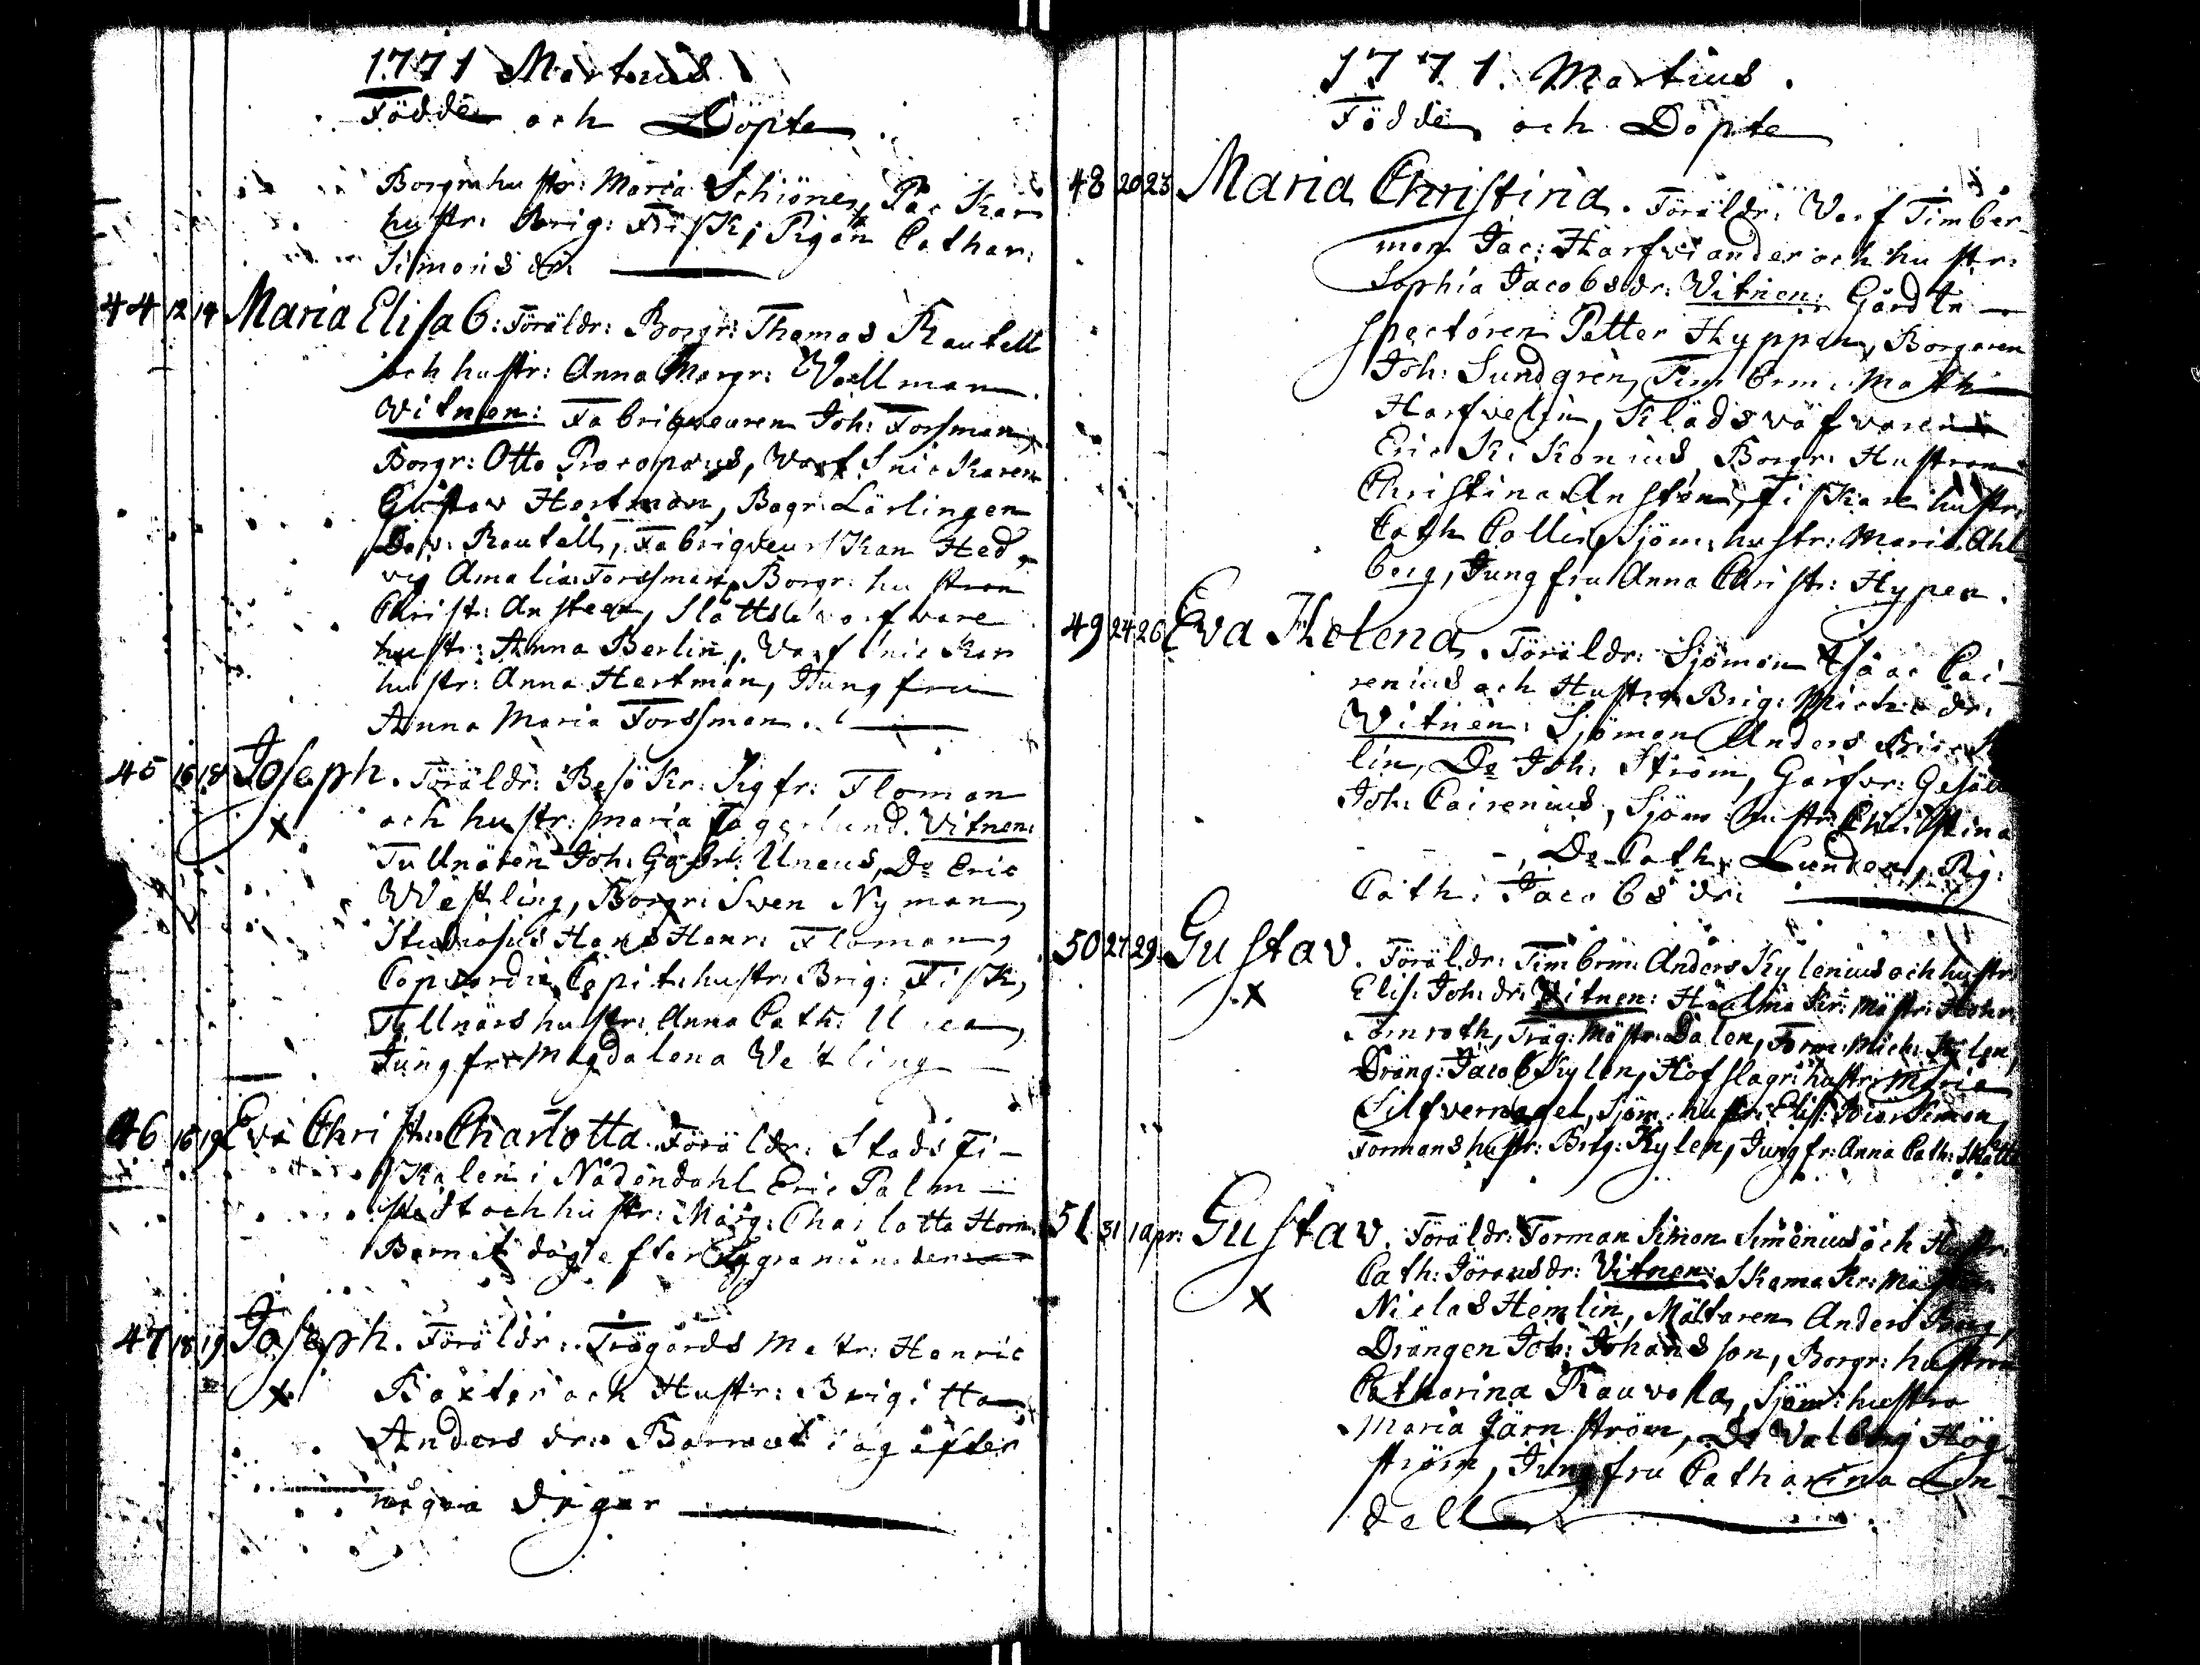 1771 Martius
Födde och Döpte
Borgm hustr: Maria Schiönes, Pac Kar
hustr: Brig: Fisk, Pigan Cathar:
Simons dr:
44 12 14 Maria Elisab: Föräldr: Borgr: Thomas Rautell
och hustr: Anna Margr: Wallman
Witnen: Fabriqveuren Joh: Forsman,
Borgr: Otto Procopæus, Warf Snickaren
Gustav Hertman, Bagr: Lärlingen
Dav: Rautell, Fabriqveurskan Hed-
vig Amalia Forssman, Borgr: hustron
Christ: Ansteen, Slotts
hustr: Anna Berlin, Warf Snickar
hustr: Anna Hertman, Jungfru
Anna Maria Forssman.
45 16 18 Joseph. Föräldr: Besökr: Sigfr: Floman
och hustr: Maria Fagerlund. Vitnen:
Tullnären Joh: Gabr: Uneus, Do Eric
Westling, Borgr: Swen Nyman,
Studiosus Hans Henr: Floman,
Copvordie Capit: hustr: Brig: Fisk,
Tullnärs hustr: Anna Cath:
Jungfr: Magdalena Westling
46 16 19 Eva Christ: Charlotta. Föräldr: Stads Fi-
skalen i Nådendahl Eric Palm-
stedt och hustr: Marg: Charlotta Horn
Barnet dog efter några månader
47 18 19 Joseph. Föräldr: Trägårds Mestr: Henric
x Baxter och Hustr: Brigitta
Anders dr: Barnet dog äfter
några dagar
1771. Martius.
Födde och Döpte
48 20 23 Maria Christina. Föräldr: Varf Timber-
man Jac: Harfviander och hustr:
Sophia Jacobsdr: Vitnen: Gård In-
spectoren Petter Hyppen, Borgaren
Joh: Sundgren, Timberm: Math:
Harfvelin, Klädsväfvaren
Eric Kekonius, Borgr: Hustron
Christina Ansten, Fiskare hustr:
Cath Collin, Sjöm: hustr: Maria Ahl-
berg, Jungfru Anna Christ: Hypen.
49 24 26 Eva Helena. Föräldr: Sjöman Isaac Cai-
renius och Hustru Brig: Michels dr:
Witnen: Sjöman Anders Björk
lin, Do Joh: Ström, Garfvr: Gesäll
Joh: Cairenius, Sjöm: hustr: Christina
- - -, Do Cath: Lunden, Pig:
Cath: Jacobs dr:
50 27 29 Gustav. Föräldr: Timbrm: Anders Kylenius och hustr:
x Elis: Joh: dr: Vitnen: Hattmakr: Mästr: Henr:
Tömroth, Träg: Mästr: Dalen, Form: Mich: Kylen,
Dräng: Jacob Kylen, Hofslagr: hustr: Maria
Silfvernagel, Sjöm: hustr: Elis:
Formans hustr: Brig: Kylen, Jungfr: Anna Cath:
51 31 1 apr: Gustav. Föräldr: Forman Simon Simenius och Hustr:
x Cath: Jöransdr: Vitnen: Skomakr: Mästaren
Niclas Hemlin, Mältaren Anders Berg,
Drängen Joh: Johansson, Borgr: hustru
Catharina Rauvola, Sjöm: hustru
Maria Järnström, Do Valborg Hög-
ström, Jungfru Catharina Lin-
dell